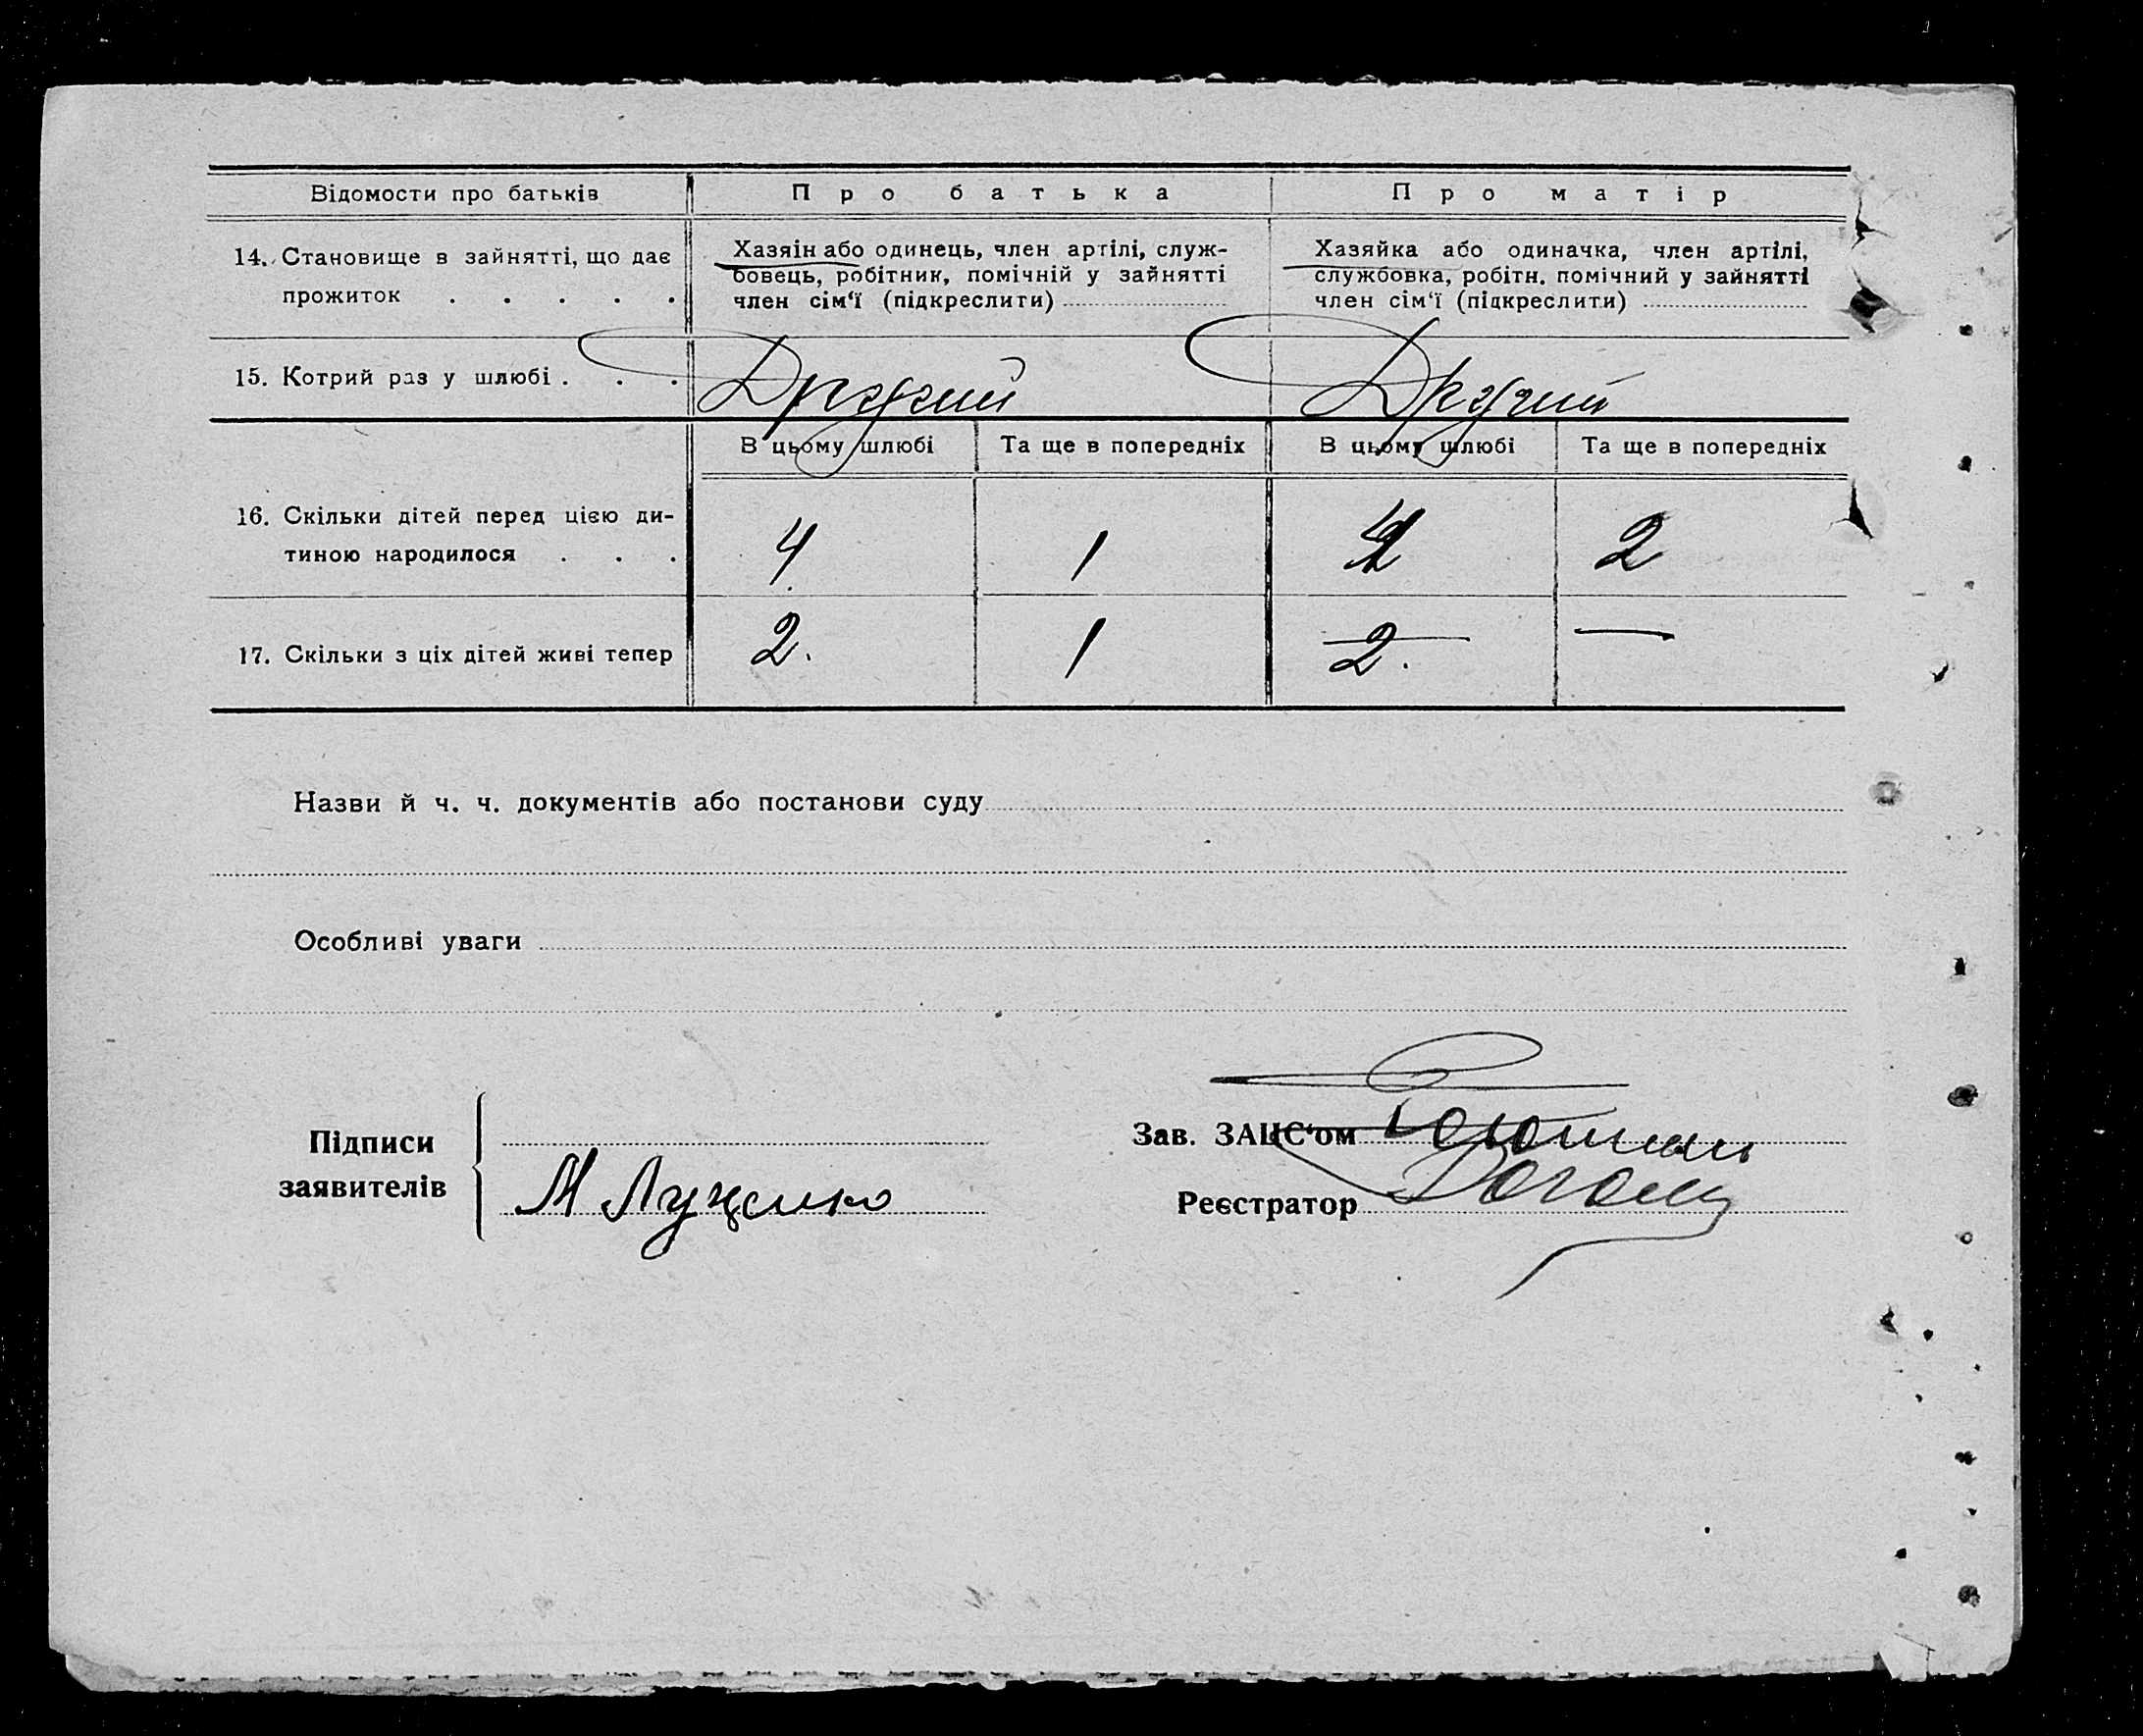 Відомости про батьків Про батька Про матір
14. Становище в зайнятті, що дає
прожиток . . . . .
Хазяін або одинець, член артілі, служ-
бовець, робітник, помічній у зайнятті
член сім‘ї (підкреслити)
Хазяйка або одиначка, член артілі,
службовка, робітн. помічний у зайнятті
член сім‘ї (підкреслити)
15. Котрий раз у шлюбі . . . Другий Другий
В цьому шлюбі Та ще в попередніх В цьому шлюбі Та ще в попередніх
16. Скільки дітей перед цією ди-
тиною народилося . . .
4 1 4 2
17. Скільки з ціх дітей живі тепер 2. 1 2. —
Назви й ч. ч. документів або постанови суду
Особливі уваги
Підписи
заявителів
М Луценко
Зав. ЗАЦС‘ом
Реєстратор